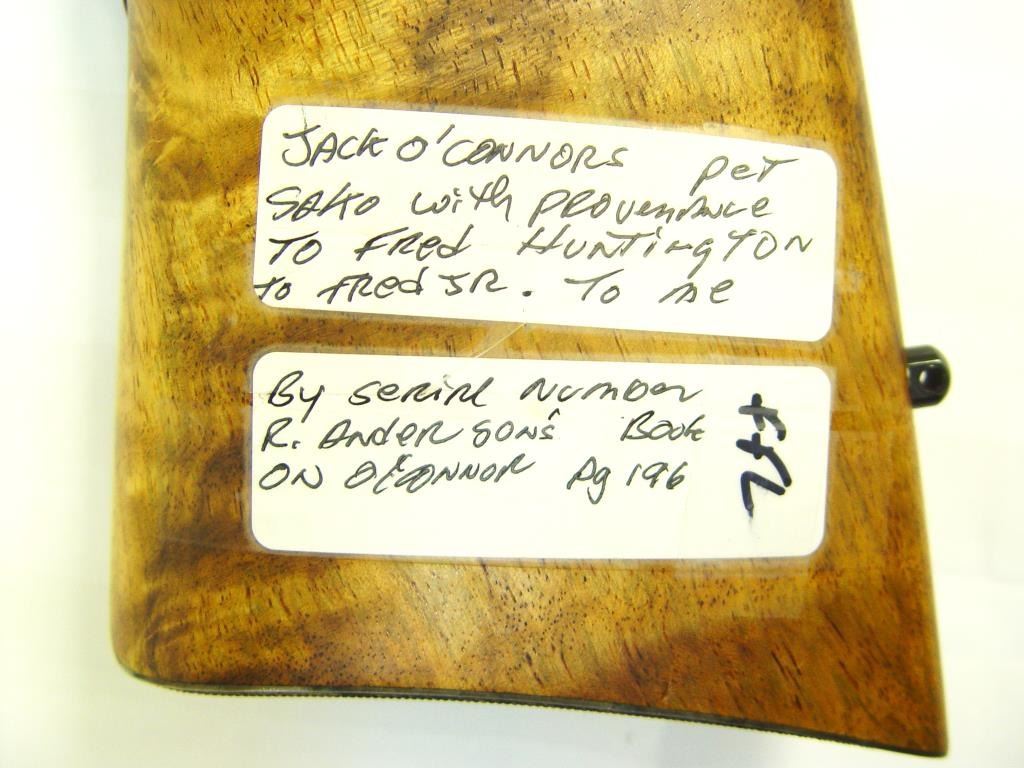 JACK O'CONNORS PeT
SAKO with PROVENANCE
TO FRed HUNTingTON
to FRed JR. To me
By SERIAL NUMBER
R. ANDERSON'S BOOK
ON O'CONNOR Pg 196